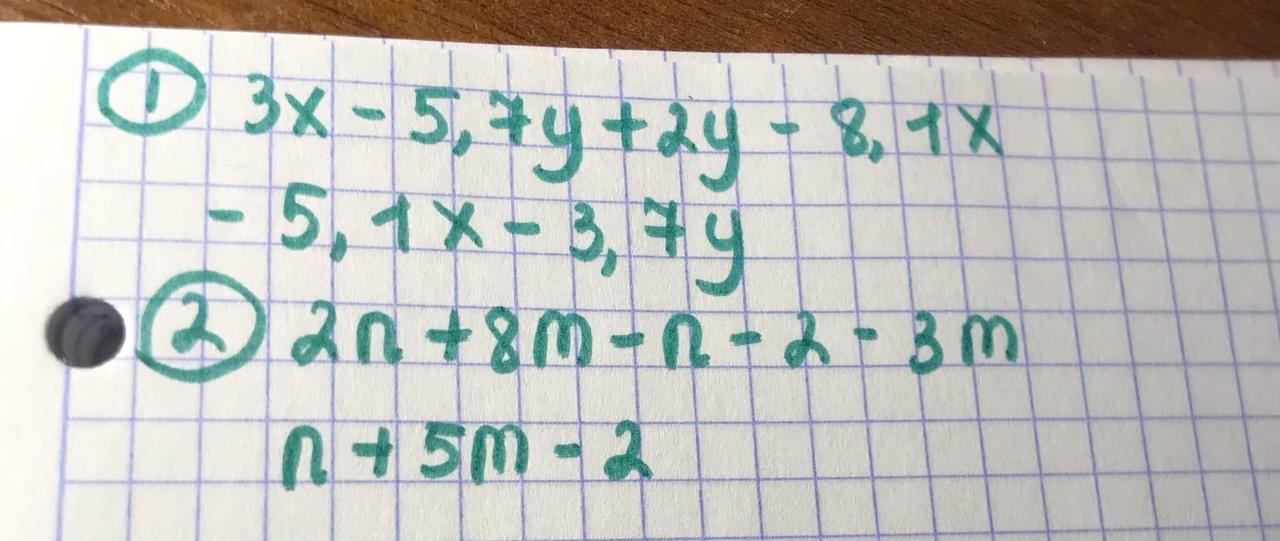 ① 3x - 5,7y + 2y - 8,1x
- 5,1x - 3,7y
② 2n + 8m - n - 2 - 3m
n + 5m - 2